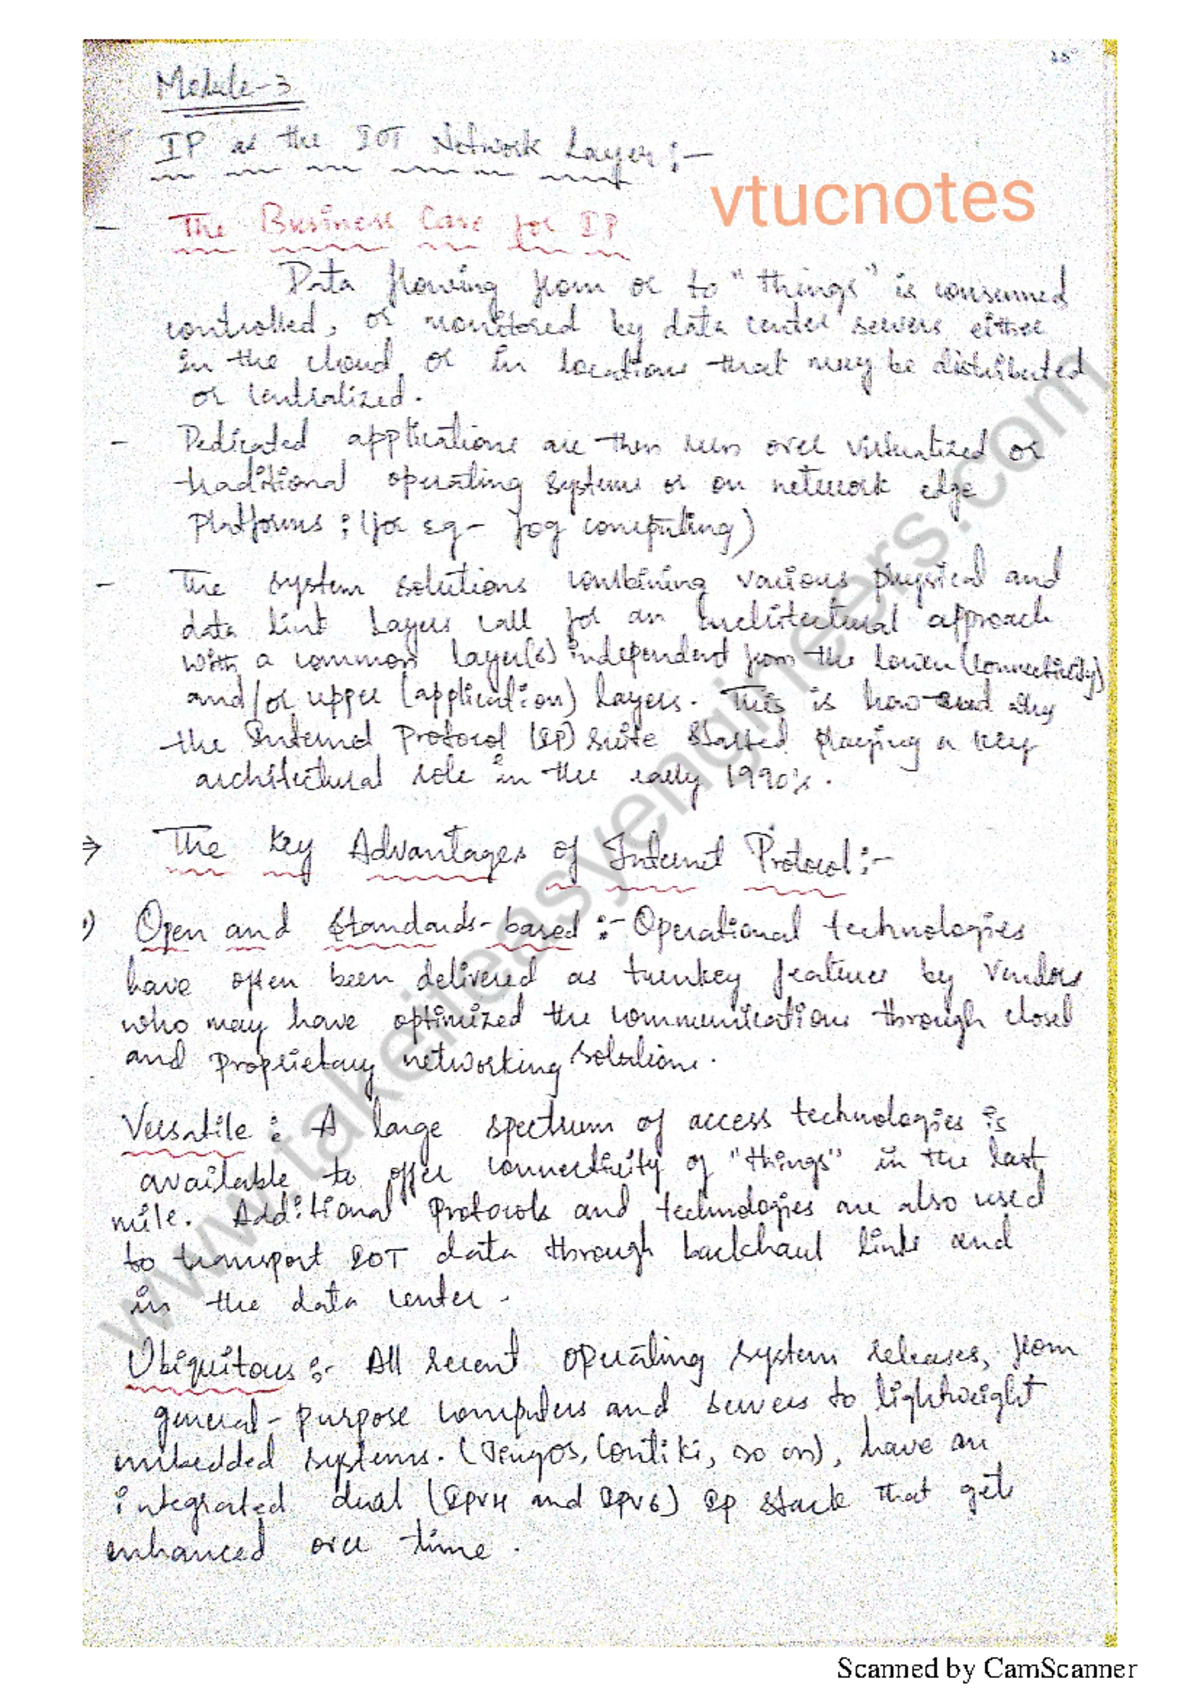 Module-3
IP as the IOT Network Layer :-
vtucnotes
- The Business Case for IP
Data flowing from or to "things" is consumed,
controlled, or monitored by data center servers either
in the cloud or in locations that may be distributed
or centralized.
- Dedicated applications are then run over virtualized or
traditional operating systems or on network edge
platforms : (for eg - fog computing)
- The system solutions combining various physical and
data link layers call for an architectural approach
with a common layer(s) independent from the lower (connectivity)
and/or upper (application) layers. This is how and why
the Internet Protocol (IP) suite started playing a key
architectural role in the early 1990's.
⇒ The Key Advantages of Internet Protocol :-
Open and Standards-based :- Operational technologies
have often been delivered as turnkey features by vendors
who may have optimized the communications through closed
and proprietary networking solutions.
Versatile : A large spectrum of access technologies is
available to offer connectivity of "things" in the last
mile. Additional protocols and technologies are also used
to transport IOT data through backhaul links and
in the data center.
Ubiquitous :- All recent operating system releases, from
general-purpose computers and servers to lightweight
embedded systems. (TinyOS, Contiki, so on), have an
integrated dual (IPV4 and IPV6) IP stack that gets
enhanced over time.
www.takeiteasyengineers.com
Scanned by CamScanner